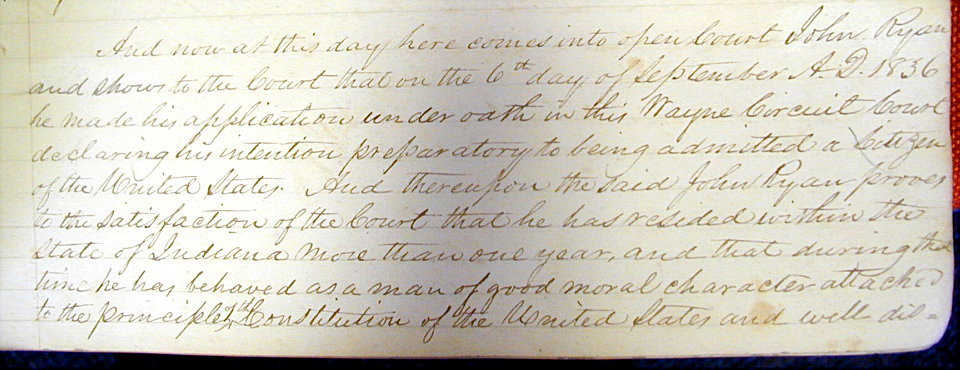 And now at this day here comes into open Court John Ryan
and shows to the Court that on the 6th day of September A.D. 1836
he made his application under oath in this Wayne Circuit Court
declaring his intention preparatory to being admitted a Citizen
of the United States. And thereupon the said John Ryan proves
to the satisfaction of the Court that he has resided within the
State of Indiana more than one year, and that during that
time he has behaved as a man of good moral character attached
to the principles of the Constitution of the United States and well dis=